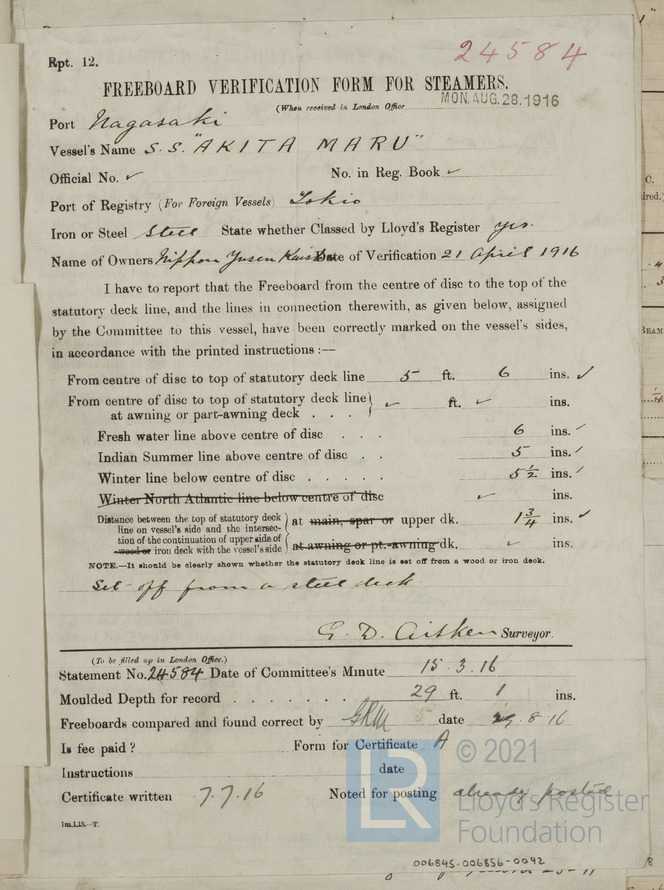 24584
Rpt. 12.
FREEBOARD VERIFICATION FORM FOR STEAMERS.
(When received in London Office MON. AUG. 28. 1916
Port Nagasaki
Vessel's Name S.S. "AKITA MARU"
Official No. ✓ No. in Reg. Book ✓
Port of Registry (For Foreign Vessels) Tokio
Iron or Steel Steel State whether Classed by Lloyd's Register yes.
Name of Owners Nippon Yusen Date of Verification 21 April 1916
I have to report that the Freeboard from the centre of disc to the top of the
statutory deck line, and the lines in connection therewith, as given below, assigned
by the Committee to this vessel, have been correctly marked on the vessel's sides,
in accordance with the printed instructions :—
From centre of disc to top of statutory deck line 5 ft. 6 ins. ✓
From centre of disc to top of statutory deck line
at awning or part-awning deck . . . ✓ ft. ✓ ins.
Fresh water line above centre of disc . . . 6 ins. ✓
Indian Summer line above centre of disc . . 5 ins. ✓
Winter line below centre of disc . . . . . 5½ ins. ✓
Winter North Atlantic line below centre of disc ✓ ins.
Distance between the top of statutory deck
line on vessel's side and the intersec-
tion of the continuation of upper side of
wood or iron deck with the vessel's side
at main, spar or upper dk. 1¾ ins. ✓
at awning or pt.-awning dk. ✓ ins.
NOTE.—It should be clearly shown whether the statutory deck line is set off from a wood or iron deck.
Set off from a steel deck
G. D. Aitken Surveyor.
(To be filled up in London Office.)
Statement No. 24584 Date of Committee's Minute 15.3.16
Moulded Depth for record . . . . . . . 29 ft. 1 ins.
Freeboards compared and found correct by date 29.8.16
Is fee paid ? Form for Certificate A
Instructions date
Certificate written 7.7.16 Noted for posting already posted
1m,1,15.—T.
LR
© 2021
Lloyd's Register
Foundation
006845-006856-0042